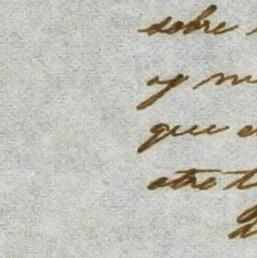 sobre
y m
que e
otre t